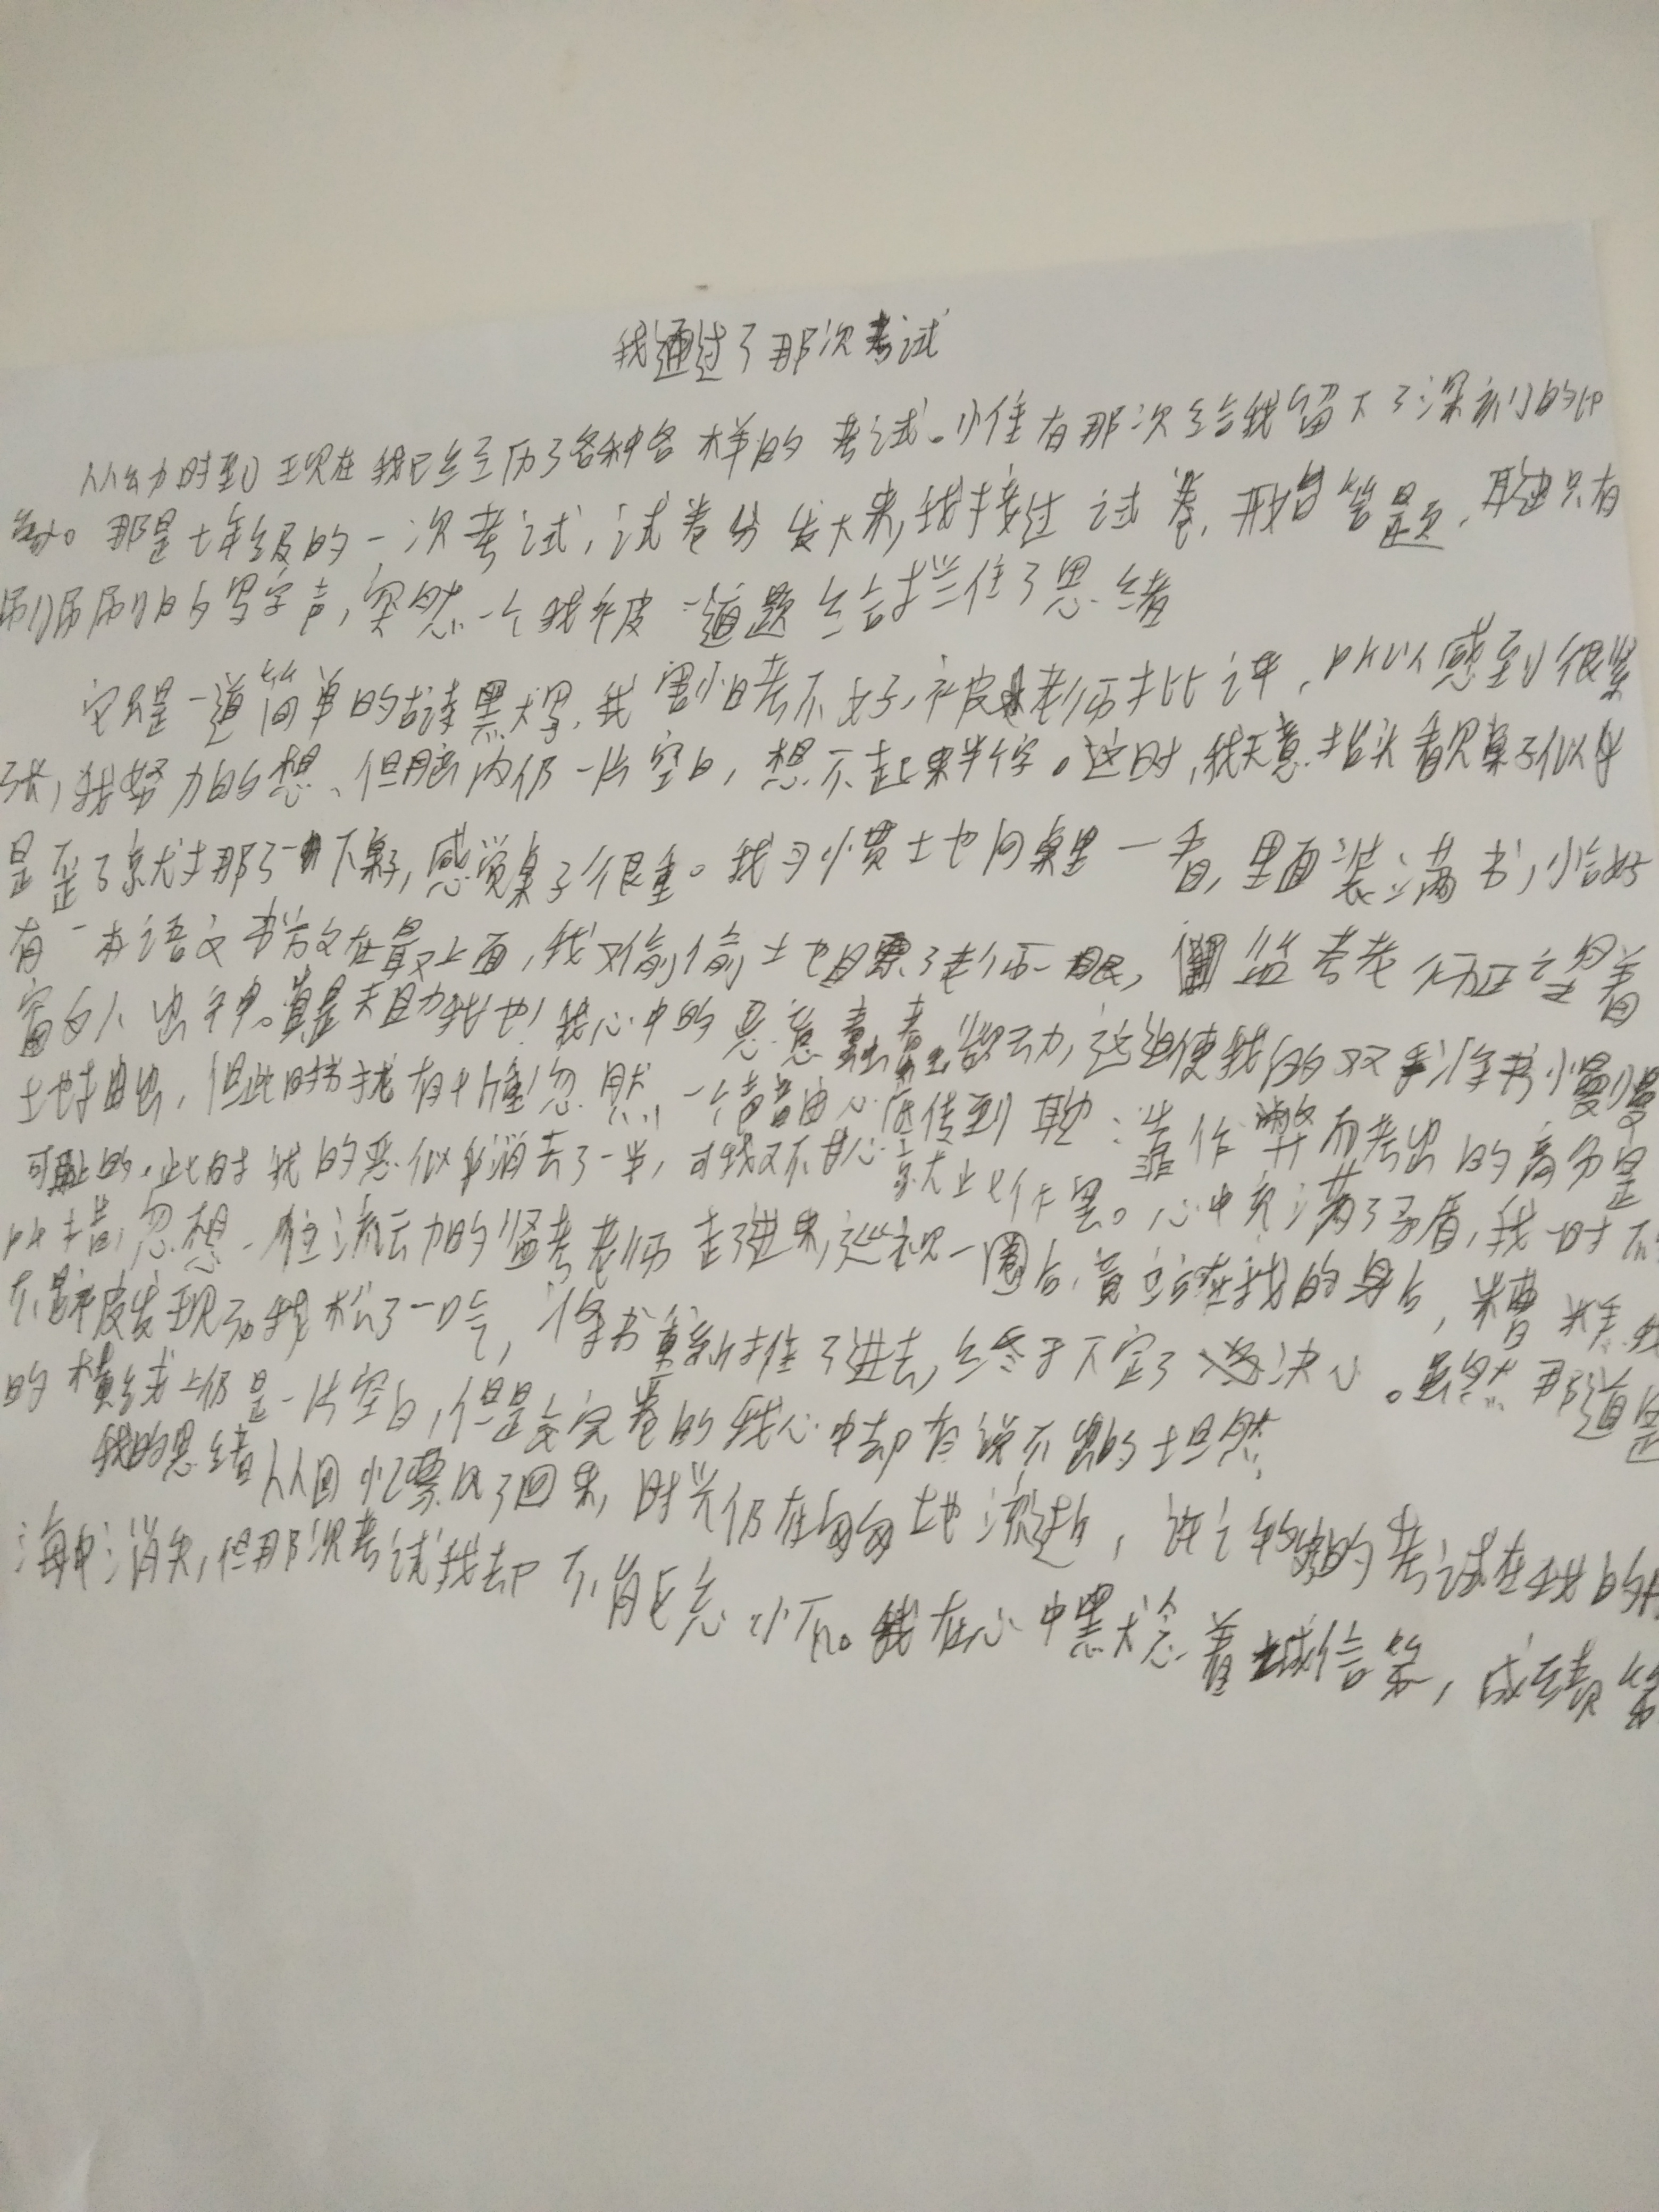 我通过了那次考试
从幼时到现在我已经历了各种各样的考试。惟有那次给我留下了深刻的印
象。那是七年级的一次考试,试卷分发下来,我接过试卷,开始答题,耳边只有
刷刷刷的写字声,突然一个我被一道题给拦住了思绪
它只是一道简单的古诗默写,我害怕考不好,被老师批评,所以感到很紧
张,我努力的想、但脑内仍一片空白,想不起来半个字。这时,我无意抬头看见桌子似乎
是歪了就挪了一下桌子,感觉桌子很重。我习惯地向桌里一看,里面装满书,恰好
有一本语文书放在最上面,我又偷偷地瞟了老师一眼,监考老师正望着
窗外出神。真是天助我也!我心中的恶意蠢蠢欲动,这迫使我的双手将书慢慢
地抽出,但此时忽然一个声音由心底传到耳边:靠作弊而考出的高分是
可耻的。此时我的恶似乎消去了一半,可我又不甘心就此作罢。心中充满了矛盾,我一时不
所措,忽想,流动的监考老师走了进来,巡视一圈后,竟站在我的身后,糟糕我
不是被发现了我松了一口气,将书重新推了进去,终于下定了决心。虽然那道题
的横线上仍是一片空白,但是交完卷的我心中却有说不出的坦然。
我的思绪从回忆飘了回来,时光仍在匆匆地流逝,许许多多的考试在我的
海中消失,但那次考试我却不能忘怀。我在心中默念着诚信第,成绩第